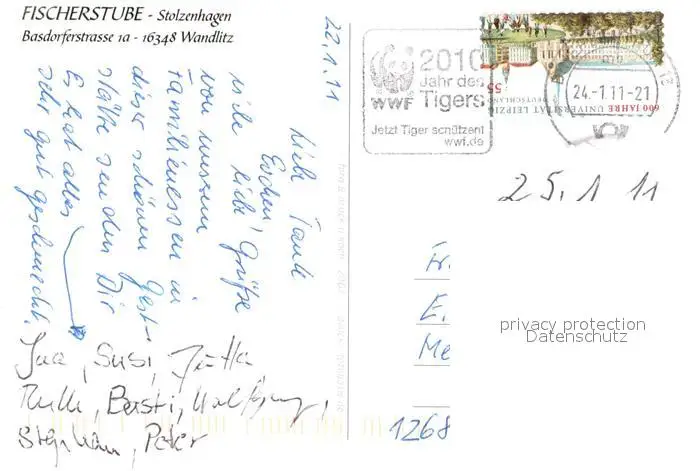 FISCHERSTUBE - Stolzenhagen
Basdorferstrasse 1a - 16348 Wandlitz
22.1.11
Liebe Tante
Evchen! Grüße
viele liebe
von unserem
Familienessen in
dieser schönen Gast-
stätte senden Dir
Es hat alles
sehr gut geschmeckt.
Susi, Jutta
Basti, Wolfgang,
Stephan, Peter
2010
Jahr des
Tigers
WWF
Jetzt Tiger schützen!
wwf.de
600 JAHRE UNIVERSITÄT LEIPZIG
DEUTSCHLAND
55
24.-1.11-21
12
25.1 11
Fr.
E.
Me
1268
privacy protection
Datenschutz